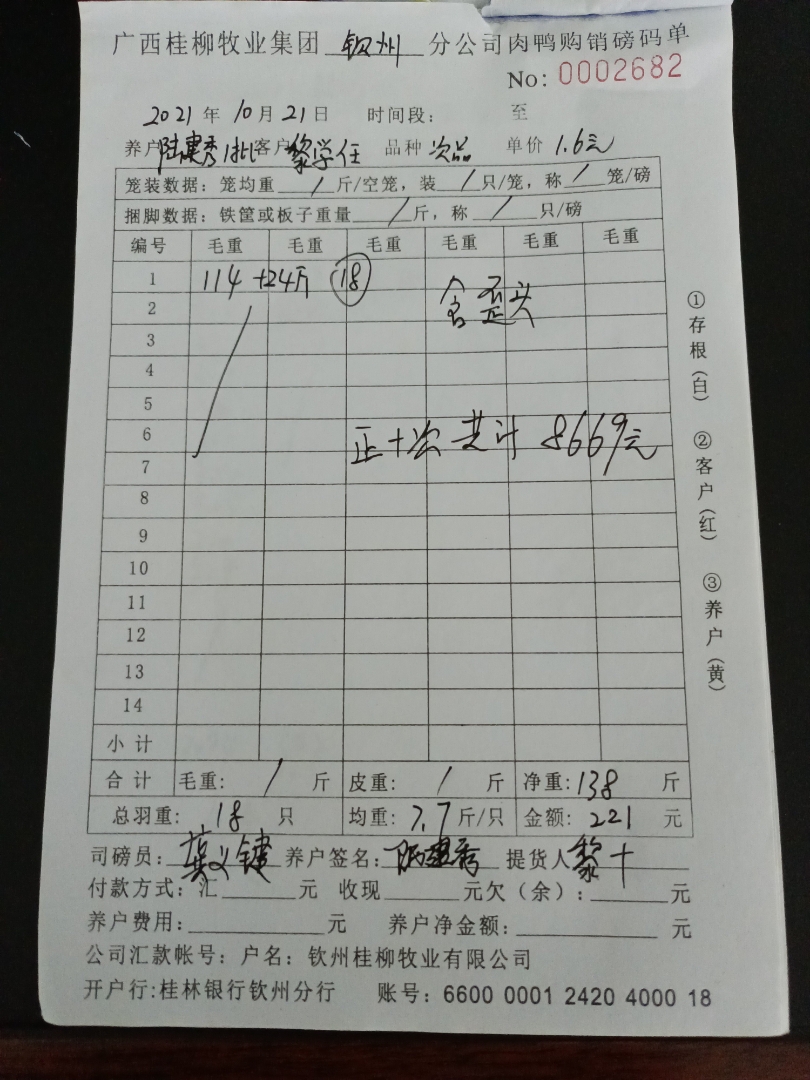 广西桂柳牧业集团 钦州 分公司肉鸭购销磅码单
No: 0002682
2021年10月21日 时间段: 至
养户陆建秀1批客户黎学任 品种 次品 单价 1.6元
笼装数据: 笼均重 / 斤/空笼, 装 / 只/笼, 称 / 笼/磅
捆脚数据: 铁筐或板子重量 / 斤, 称 / 只/磅
编号 毛重 毛重 毛重 毛重 毛重 毛重
1 114 +24斤 18
2 含歪头
3
4
5
6 正+次 共计 8669元
7
8
9
10
11
12
13
14
小计
合计 毛重: / 斤 皮重: / 斤 净重: 138 斤
总羽重: 18 只 均重: 7.7 斤/只 金额: 221 元
司磅员: 养户签名: 提货人 黎
付款方式: 汇 元 收现 元欠(余): 元
养户费用: 元 养户净金额: 元
公司汇款帐号: 户名: 钦州桂柳牧业有限公司
开户行:桂林银行钦州分行 账号: 6600 0001 2420 4000 18
①存根(白) ②客户(红) ③养户(黄)